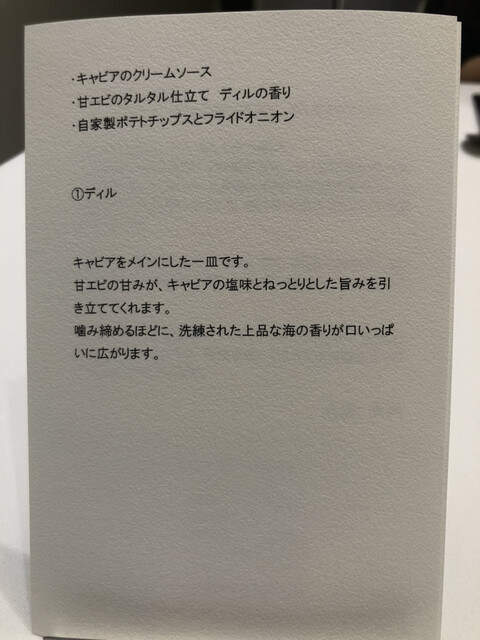 ・キャビアのクリームソース
・甘エビのタルタル仕立て　ディルの香り
・自家製ポテトチップスとフライドオニオン
①ディル
キャビアをメインにした一皿です。
甘エビの甘みが、キャビアの塩味とねっとりとした旨みを引
き立ててくれます。
噛み締めるほどに、洗練された上品な海の香りが口いっぱ
いに広がります。